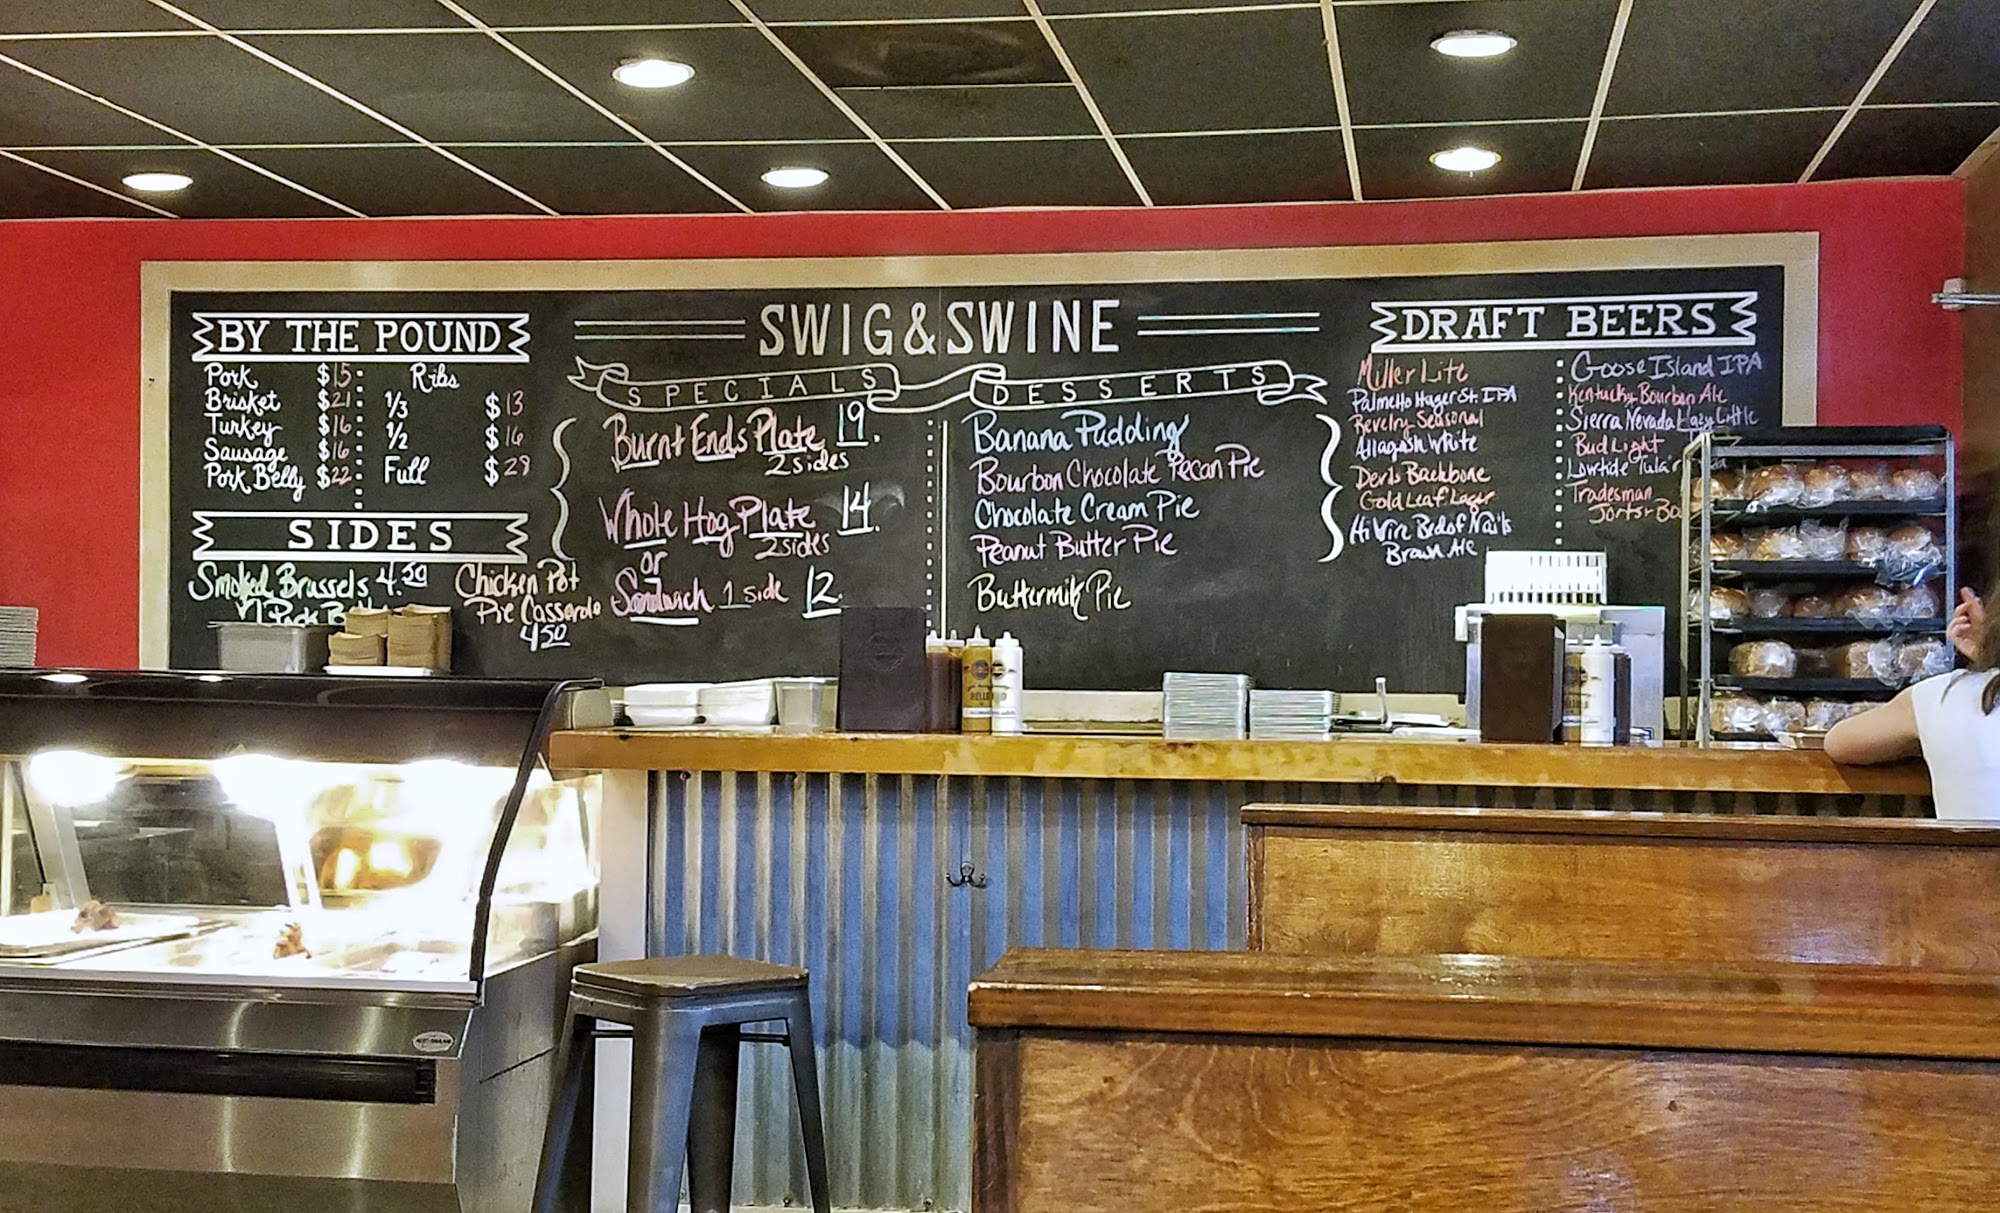 SWIG & SWINE
BY THE POUND
Pork $15
Brisket $21
Turkey $16
Sausage $16
Pork Belly $22
Ribs
1/3 $13
1/2 $16
Full $28
SIDES
Smoked Brussels 4.50
w/ Pork
Chicken Pot
Pie Casserole
4.50
SPECIALS
Burnt Ends Plate 19.
2 sides
Whole Hog Plate 14.
2 sides
or
Sandwich 1 side 12
DESSERTS
Banana Pudding
Bourbon Chocolate Pecan Pie
Chocolate Cream Pie
Peanut Butter Pie
Buttermilk Pie
DRAFT BEERS
Miller Lite
Palmetto Huger St. IPA
Revelry Seasonal
Allagash White
Devils Backbone
Gold Leaf Lager
Hi Wire Bed of Nails
Brown Ale
Goose Island IPA
Kentucky Bourbon Ale
Sierra Nevada Hazy Little
Bud Light
Lowtide
Tradesman
Jorts